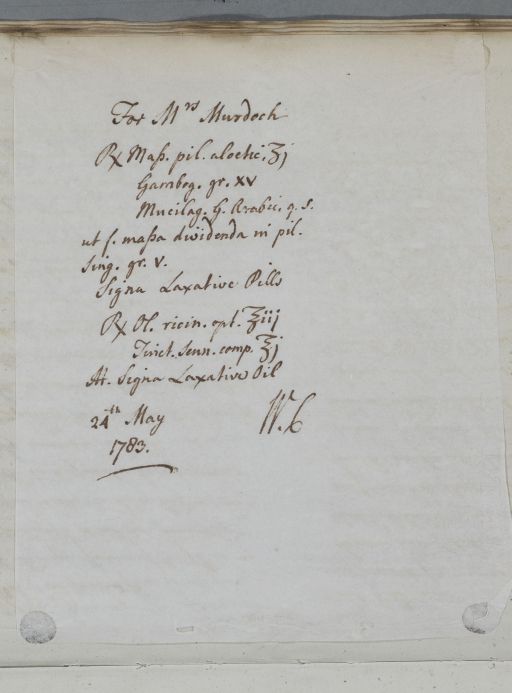 For Mrs Murdoch
℞ Maſs. pil. aloetic. ʒj
Gambog. gr. xv
Mucilag. G. Arabic. q. s.
ut f. maſsa dividenda in pil.
sing. gr. v.
Signa Laxative Pills
℞ Ol. ricin. opt. ℥iij
Tinct. senn. comp. ℥j
M. Signa Laxative Oil
24th May
1783.
W. C